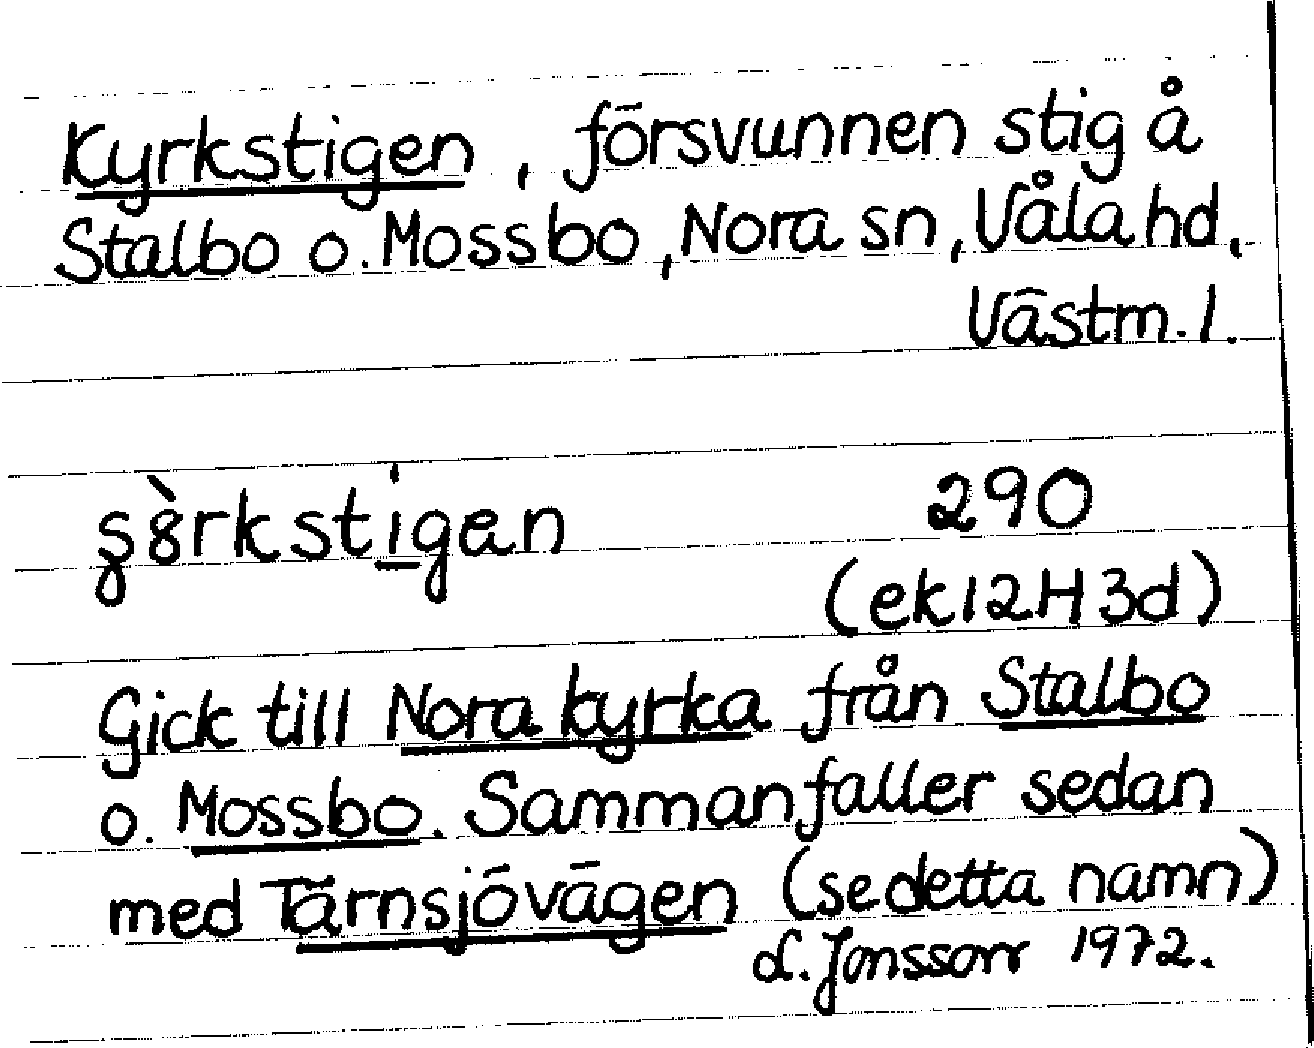 Kyrkstigen, försvunnen stig å
Stalbo o. Mossbo, Nora sn, Våla hd,
Västm. l.
290
(ek 12H 3d)
Gick till Nora kyrka från Stalbo
o. Mossbo. Sammanfaller sedan
med Tärnsjövägen (se detta namn)
L. Jonsson 1972.